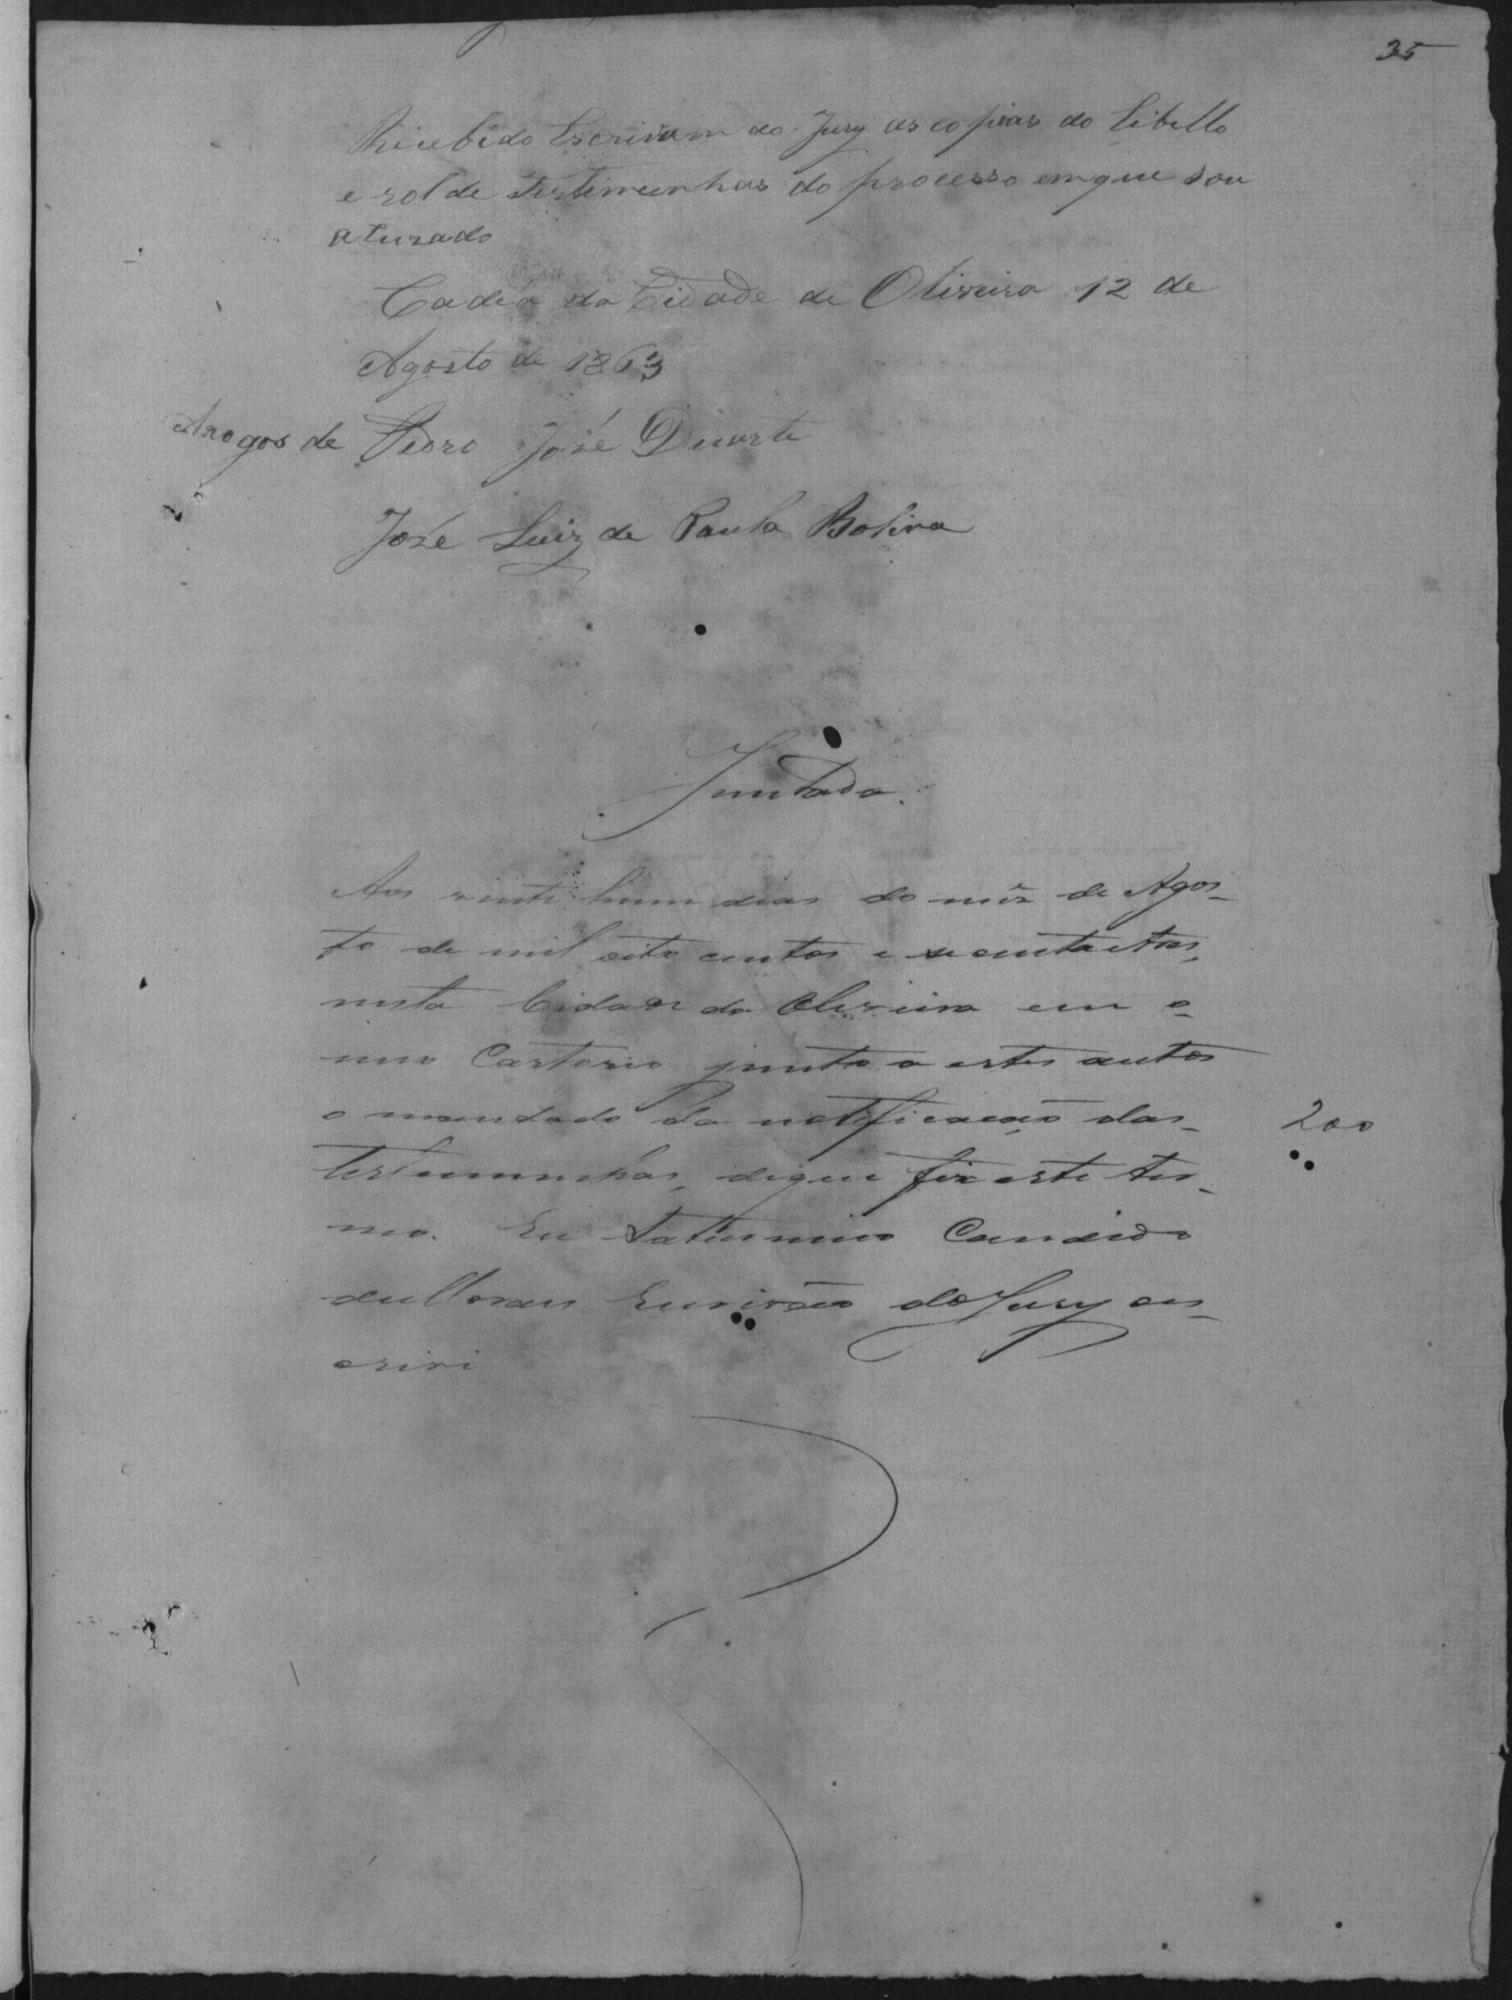 35
Recebi do Escrivam do Jury as copias do Libello
e rol de testimunhas do processo em que sou
acusado
Cadêa da Cidade de Oliveira 12 de
Agosto de 1863
Arogos de Pedro José Duarte
José Luiz de Paula Bolina
Juntada.
Aos vinti hum dias do mês de Agos-
to de mil oito centos e secenta e tres,
nesta Cidade da Oliveira em o
meo Cartorio junto a estes autos
o mandado da notificação das
testemunhas, de que fiz este ter-
200
mo. Eu Saturnino Candido
Escrivão do Jury es-
crivi